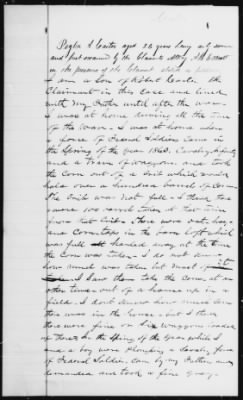 aged 32 years being duly sworn
and first examined by the Claimants Atty
in the presence of the Claimant
I am a son of Robert Carter the
Claimant in this case and lived
with my Father until after the war.
I was at home during all the time
of the war. I was at home when
a force of Federal Soldiers came in
the Spring of the year 1863,
and a train of wagons. and took
the corn out of a Crib which would
hold over a hundred barrels of corn.
The Crib was not full I think there
were 100 barrels taken at that time
from that Crib & there were oats, hay
and corn tops in the barn loft which
was full hauled away at the time
the corn was taken. I do not know
how much was taken but most of it
I saw them take the corn at an
other time out of a house up in
field. I dont know how much corn
there was in the house. but I think
there were five or six wagons loaded
up there. In the Spring of the year while I
and a boy were ploughing a
of Federal Soldiers came by my Father
and took a fine Gray